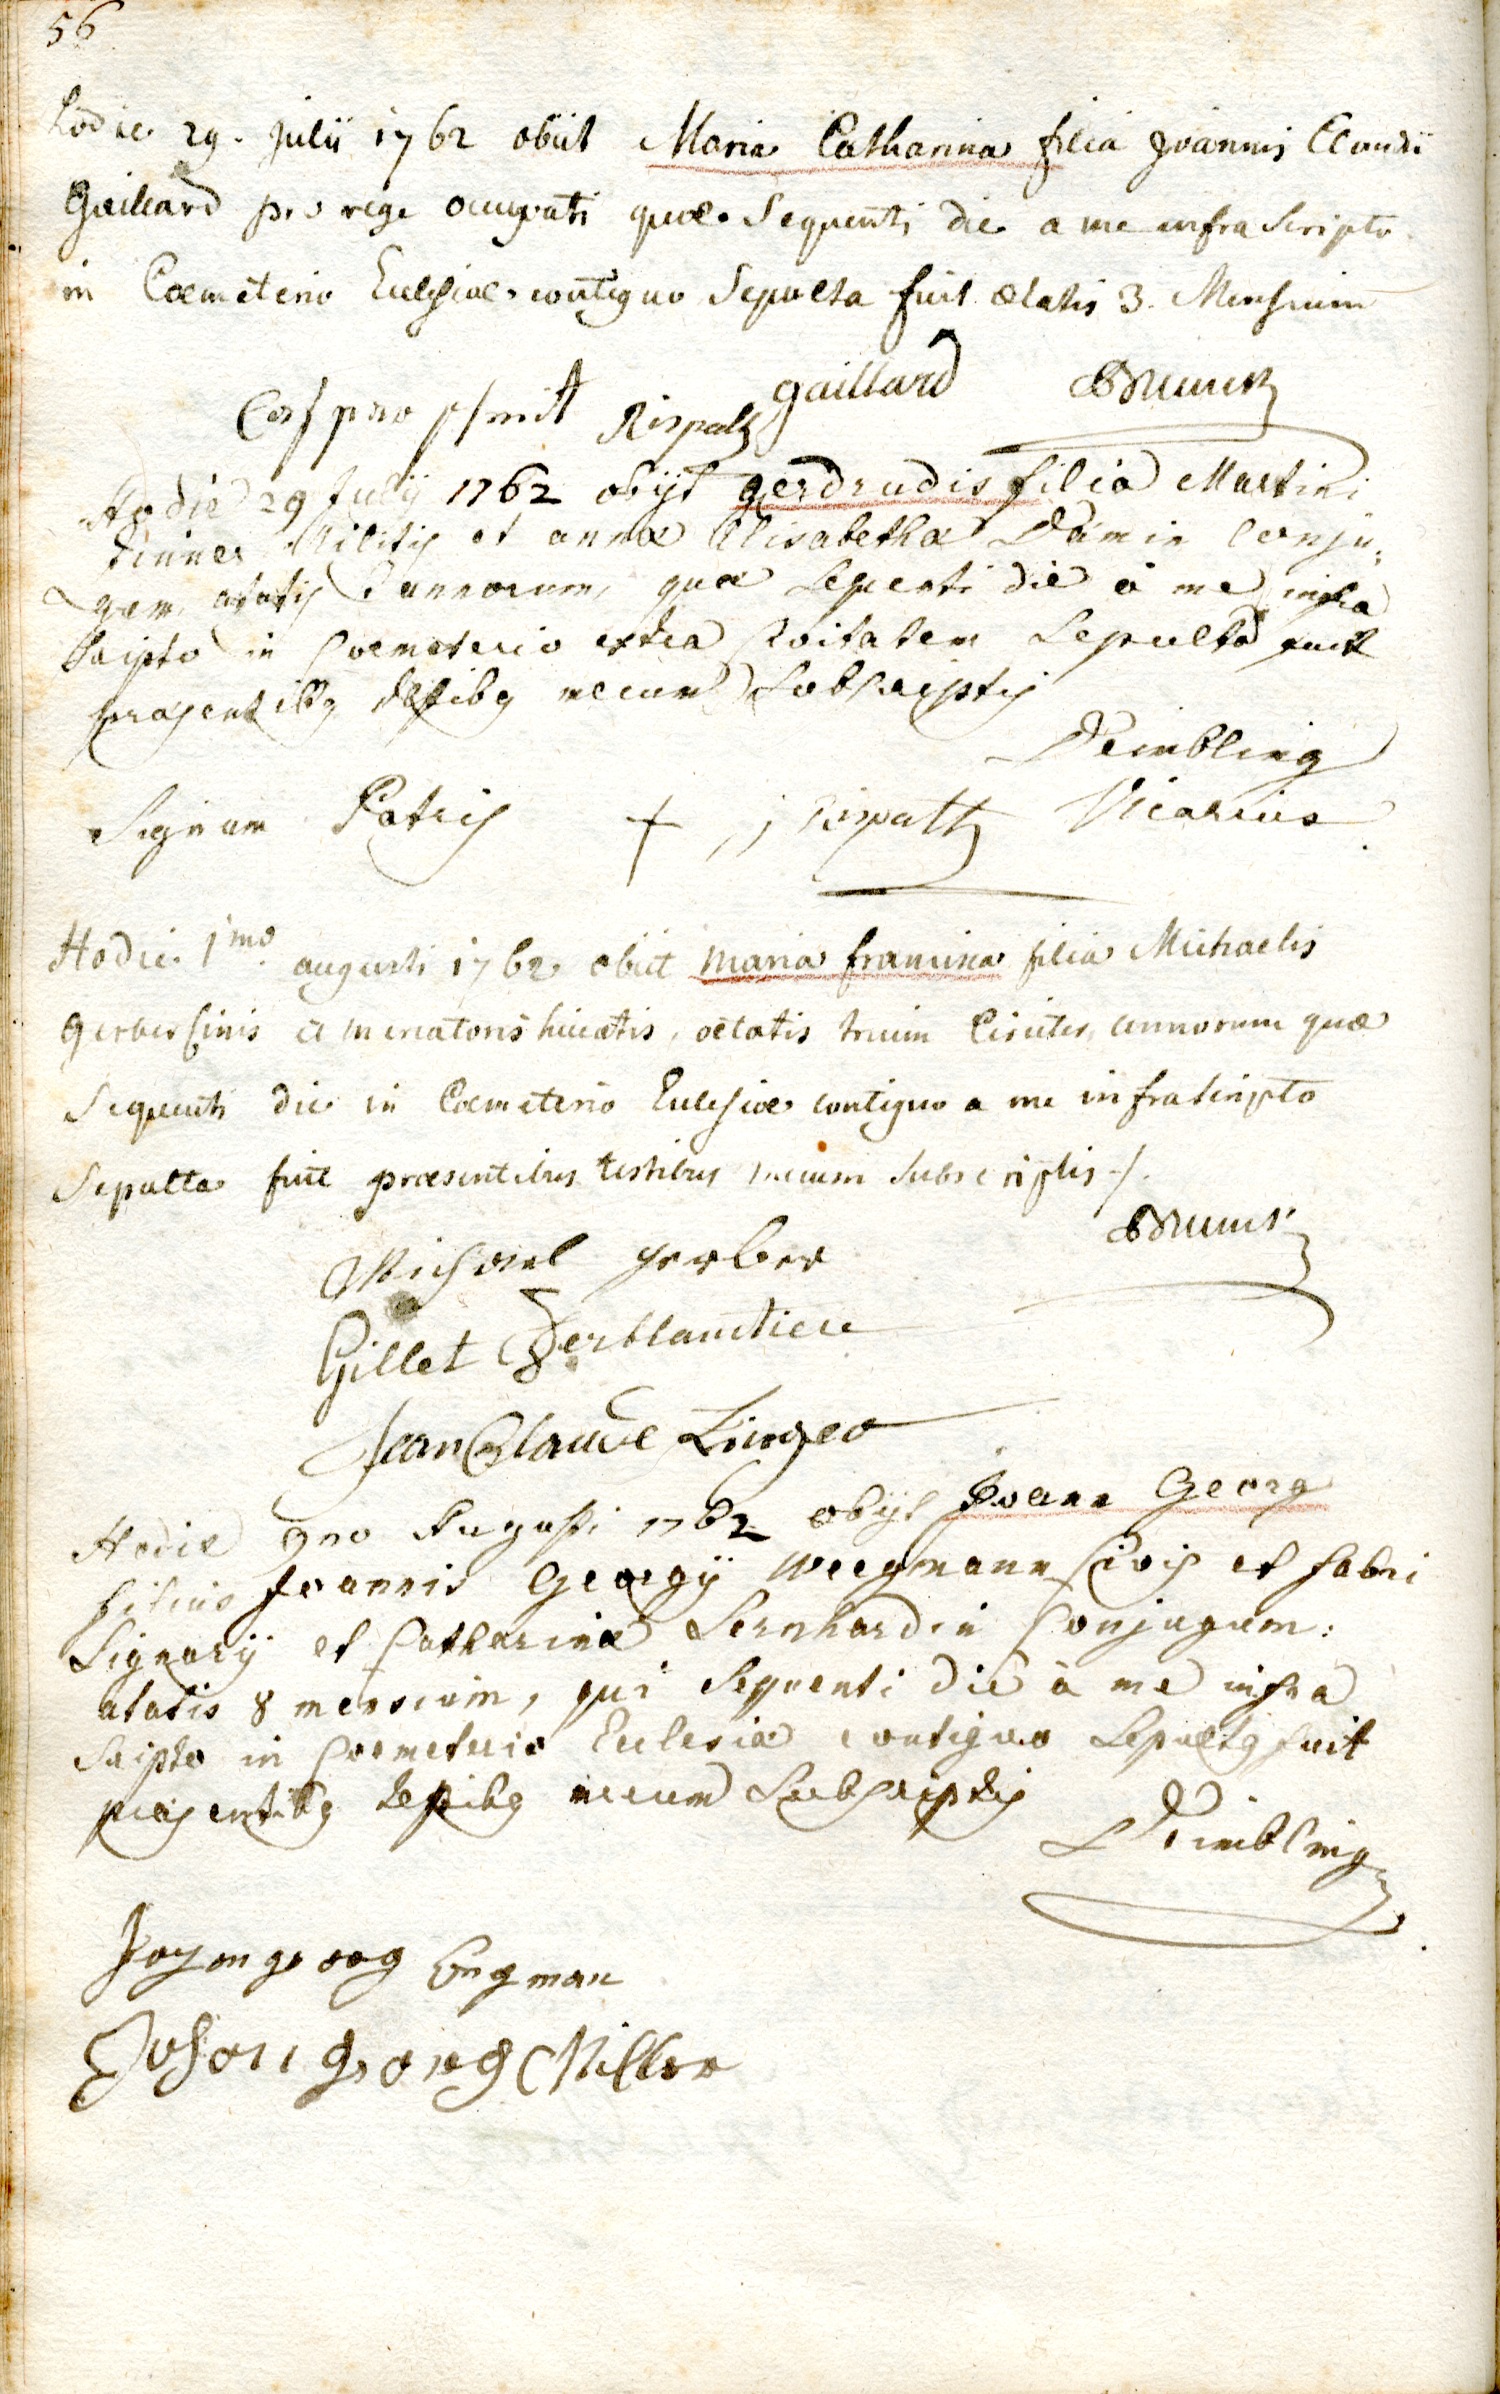 56
hodie 29. julii 1762 obiit Maria Catharina filia Joannis Claudii
Gaillard pro rege occupati quæ sequenti die a me infra scripto
in Cœmeterio Ecclesiæ contiguo sepulta fuit ætatis 3. Mensium
Caspar schmit Rispaltz gaillard
Hodie 29 July 1762 obijt gerdrudis filia Martini
Militis et annæ Elisabetha Damin conju:
gum, ætatis annorum, quæ sequenti die à me infra
scripto in Coemeterio extra Civitatem Sepulta fuit
præsentibq testibq mecum Subscriptis
Deimbling
Signum Patris + Rispaltz Vicarius
Hodie 1mo augusti 1762 obiit Maria francisca filia Michaelis
gerber Civis et mercatoris huiatis, ætatis trium Circiter annorum quæ
sequenti die in Cœmeterio Ecclesiæ contiguo a me infrascripto
sepulta fuit præsentibus testibus mecum subscriptis ./.
Michael gerber
Gillet ferblantier
Jean Claude
Hodie 9no Augusti 1762 obijt Joann Georg
filius Joannis Georgij Weegmann Civis et fabri
Lignarij et Catharinæ Bernhardin Conjugum:
ætatis 8 mensium, qui sequenti die à me infra
scripto in Coemeterio Ecclesiæ contiguo Sepultq fuit
præsentibq testibq mecum Subscriptis
Deimbling
georg
Johan georg Miller